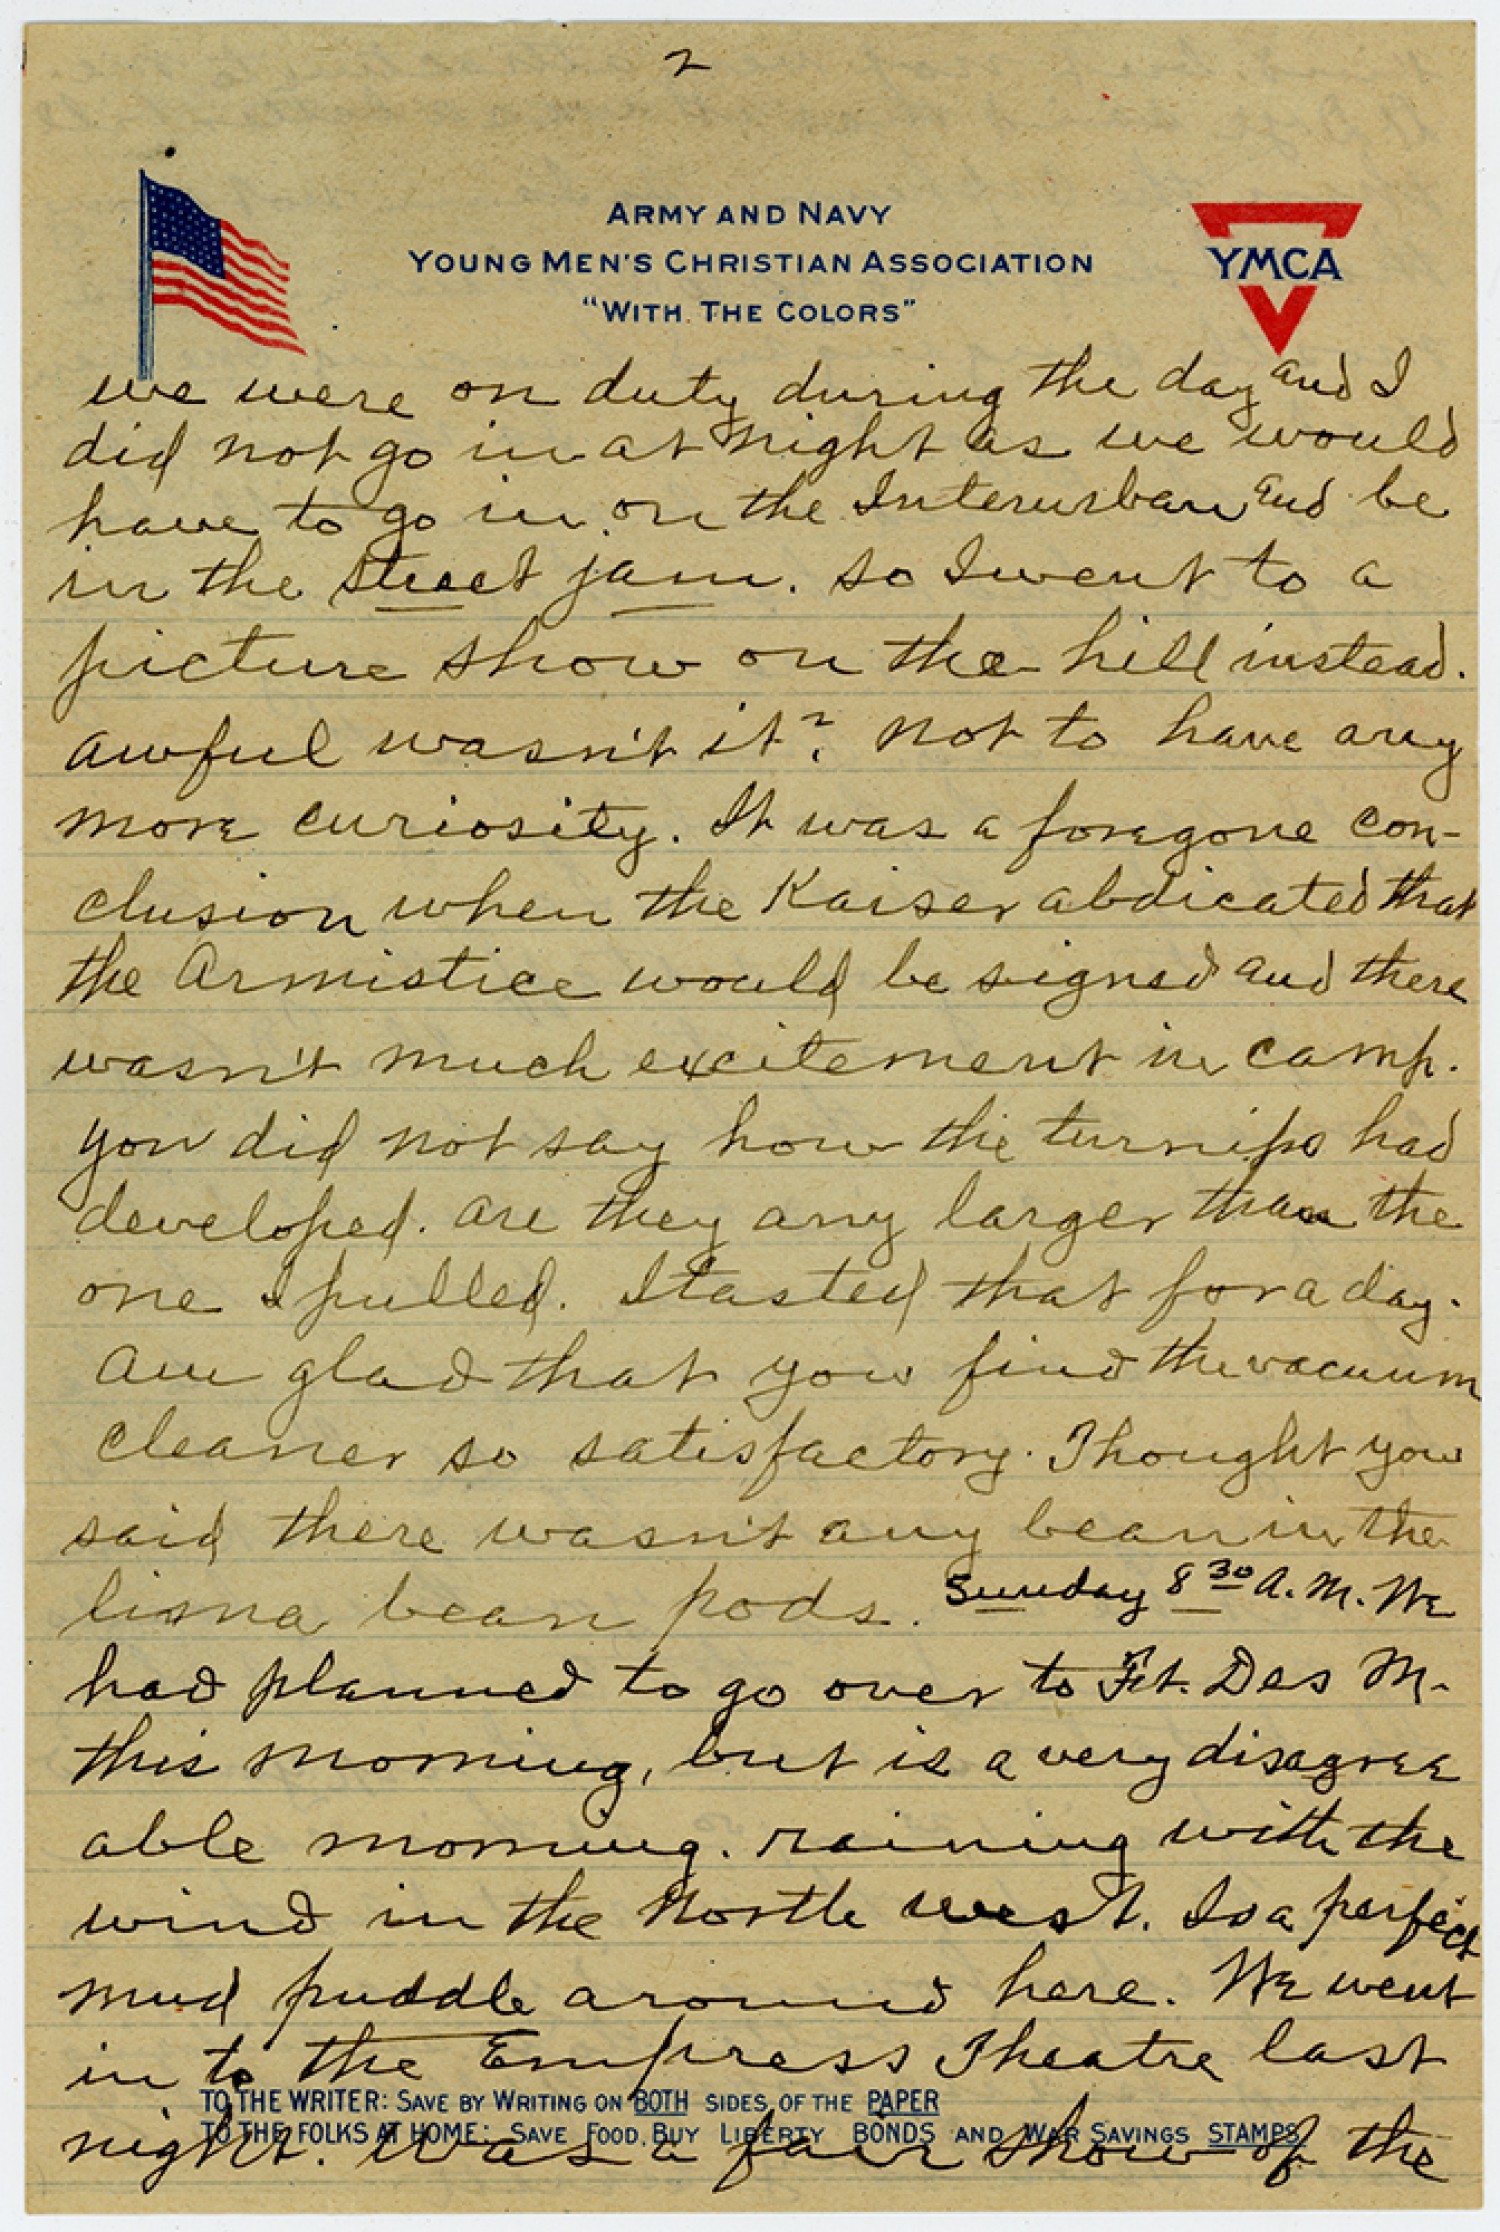 2
ARMY AND NAVY
YOUNG MEN'S CHRISTIAN ASSOCIATION
"WITH THE COLORS"
YMCA
we were on duty during the day and I
did not go in at night as we would
have to go in on the Interurban and be
in the street jam. so I went to a
picture show on the hill instead.
awful wasn't it? not to have any
more curiosity. It was a foregone con-
clusion when the Kaiser abdicated that
the Armistice would be signed and there
wasn't much excitement in camp.
you did not say how the turnips had
developed. are they any larger than the
one I pulled. I tasted that for a day.
am glad that you find the vacuum
cleaner so satisfactory. Thought you
said there wasn't any bean in the
lima bean pods. Sunday 8 30 A.M. We
had planned to go over to Ft. Des M-
this morning, but is a very disagree
able morning. raining with the
wind in the North west. Is a perfect
mud puddle around here. We went
in to the Empress Theatre last
TO THE WRITER: SAVE BY WRITING ON BOTH SIDES OF THE PAPER
TO THE FOLKS AT HOME: SAVE FOOD, BUY LIBERTY BONDS AND WAR SAVINGS STAMPS
night. Was a fair show of the